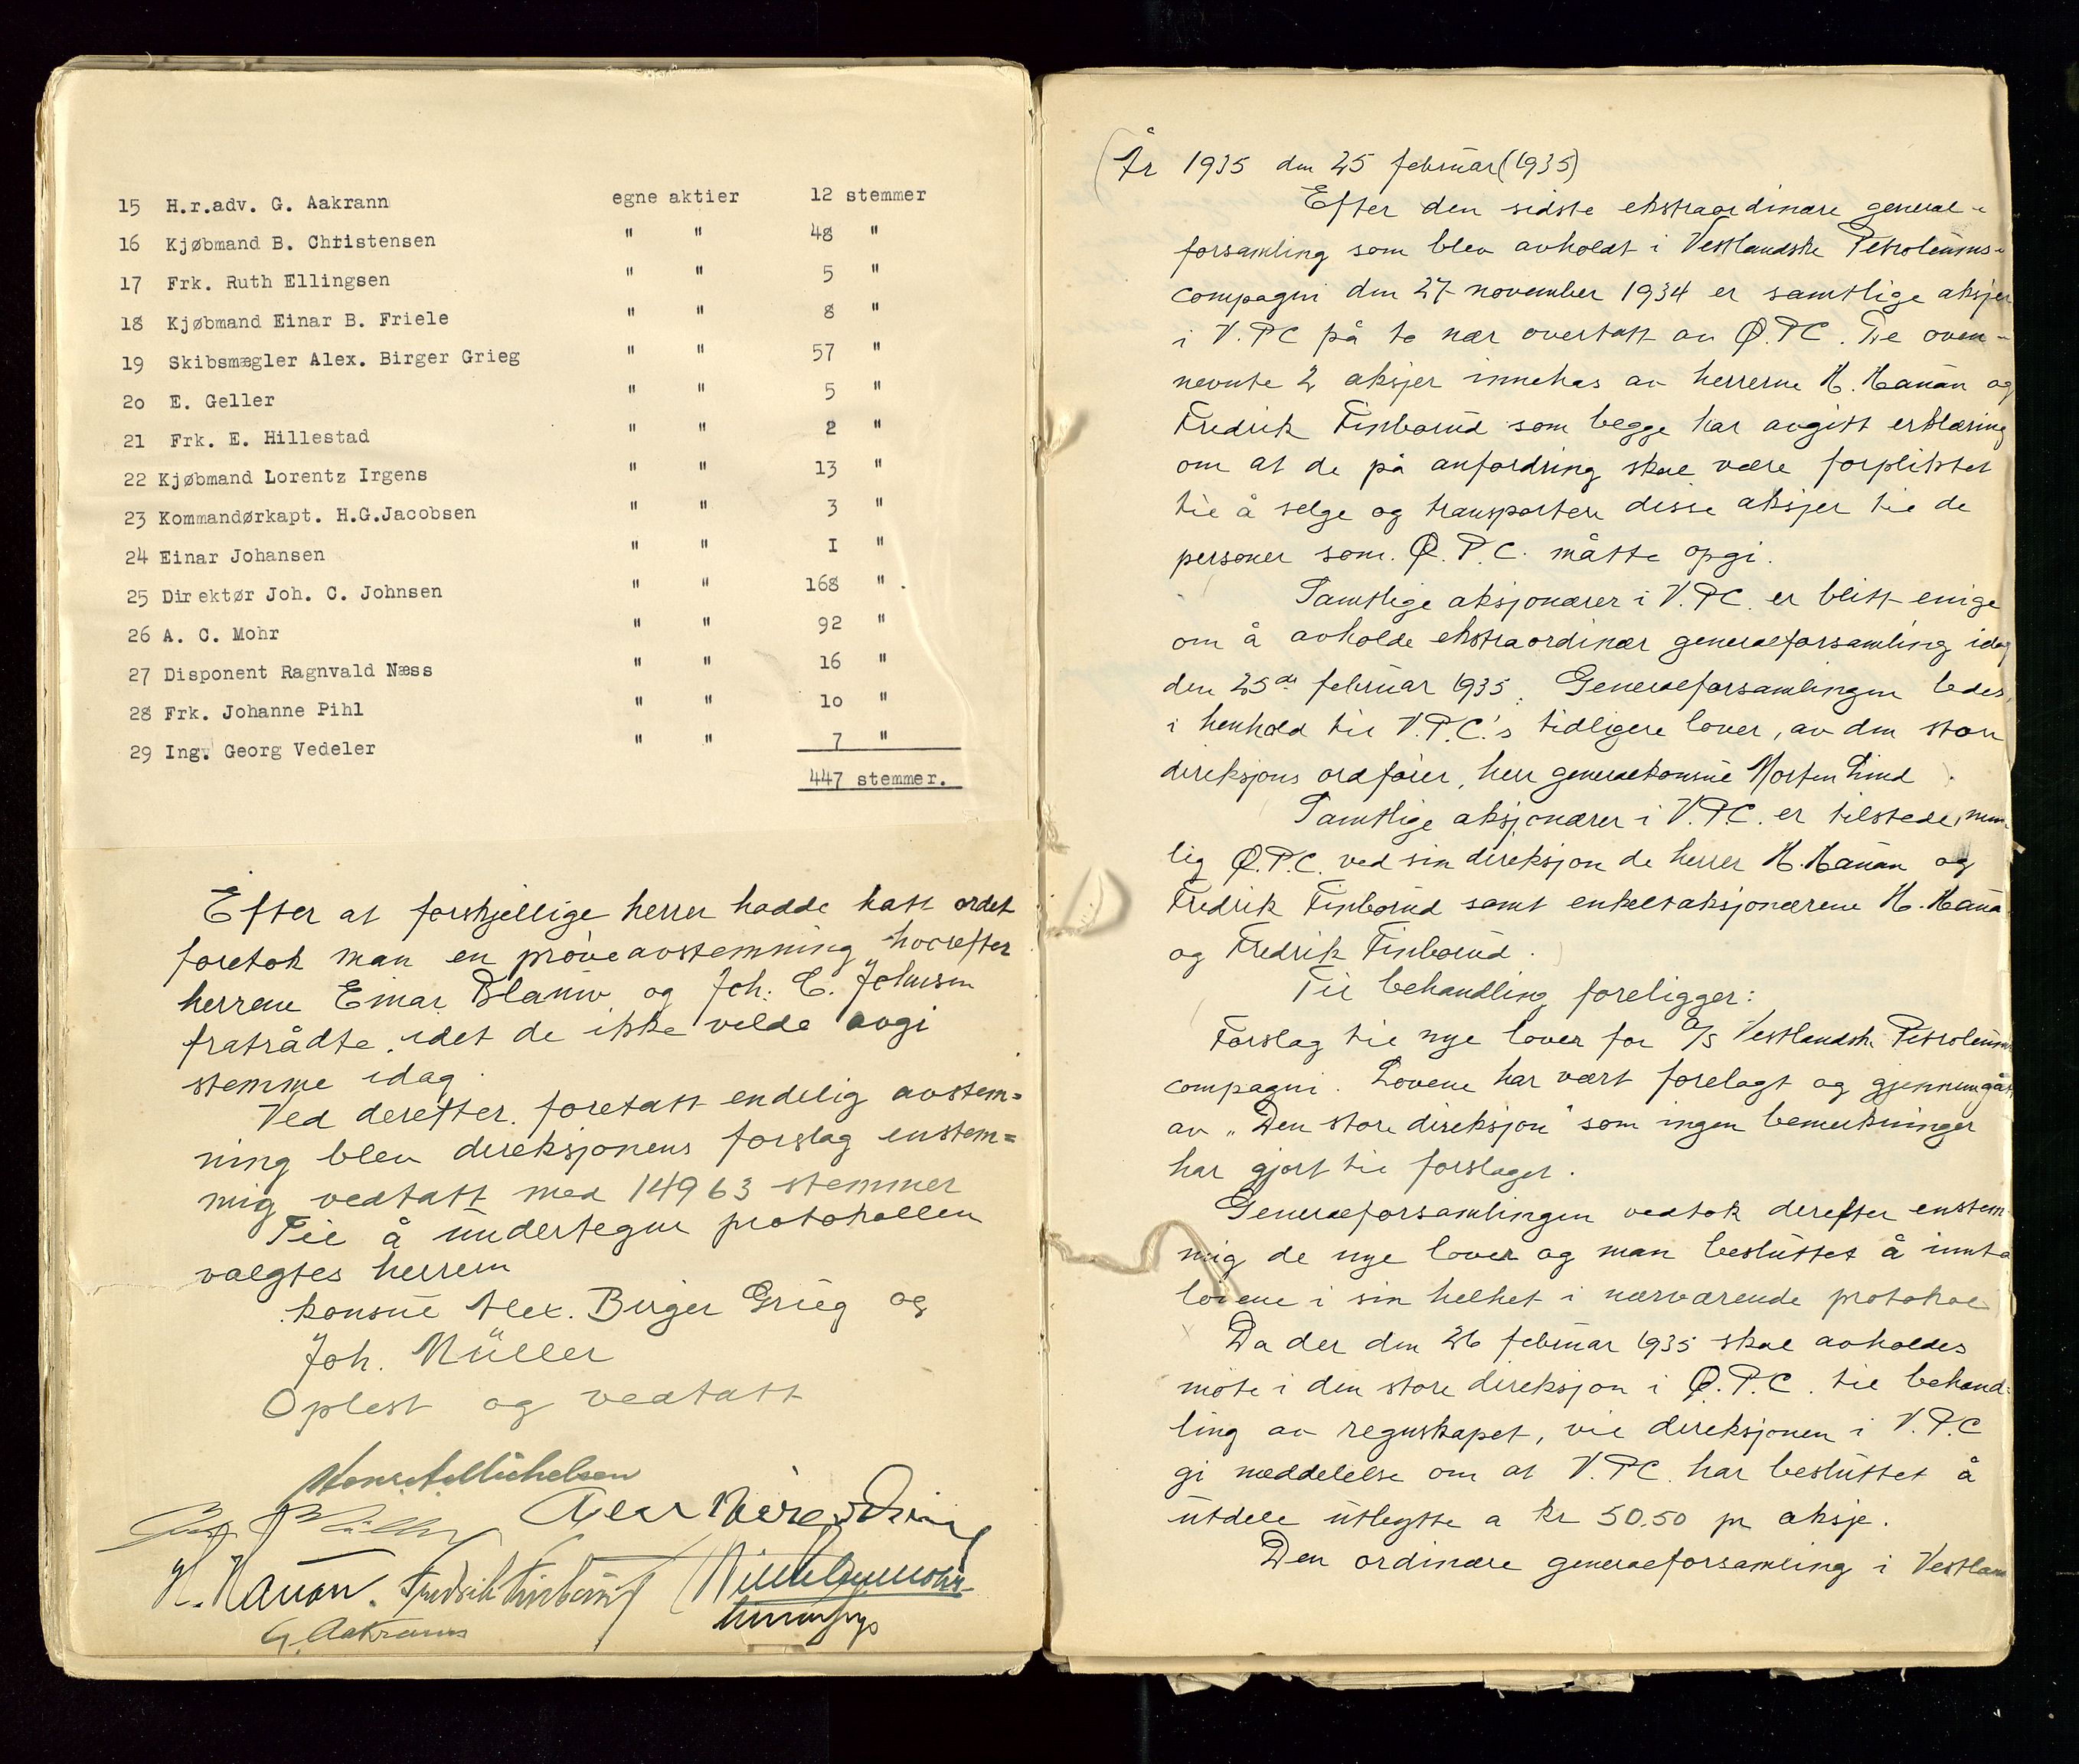 15 H.r.adv. G. Aakrann egne aktier 12 stemmer
16 Kjøbmand B. Christensen " " 48 "
17 Frk. Ruth Ellingsen " " 5 "
18 Kjøbmand Einar B. Friele " " 8 "
19 Skibsmægler Alex. Birger Grieg " " 57 "
20 E. Geller " " 5 "
21 Frk. E. Hillestad " " 2 "
22 Kjøbmand Lorentz Irgens " " 13 "
23 Kommandørkapt. H.G.Jacobsen " " 3 "
24 Einar Johansen " " I "
25 Direktør Joh. C. Johnsen " " 168 "
26 A. C. Mohr " " 92 "
27 Disponent Ragnvald Næss " " 16 "
28 Frk. Johanne Pihl " " 10 "
29 Ing. Georg Vedeler " " 7 "
447 stemmer.
Efter at forskjellige herrer hadde hatt ordet
foretok man en prøveavstemning hvorefter
herrene Einar Blauw og Joh. C. Johnsen
fratrådte, idet de ikke vilde avgi
stemme idag.
Ved derefter foretatt endelig avstem=
ning blev direksjonens forslag enstem=
mig vedtatt med 14963 stemmer
Til å undertegne protokollen
valgtes herrene
konsul Alex. Birger Grieg og
Joh. Müller
Oplest og vedtatt
H. Hauan. Fredrik Finborud
G. Aakrann
År 1935 den 25 februar (1935)
Efter den sidste ekstraordinære general-
forsamling som blev avholdt i Vestlandske Petroleums-
compagni den 27 november 1934 er samtlige aksjer
i V.P.C på to nær overtatt av Ø.P.C. De oven-
nevnte 2 aksjer innehas av herrerne H. Hauan og
Fredrik Finborud som begge har avgitt erklæring
om at de på anfordring skal være forpliktet
til å selge og transportere disse aksjer til de
personer som Ø.P.C. måtte opgi.
Samtlige aksjonærer i V.P.C. er blitt enige
om å avholde ekstraordinær generalforsamling idag
den 25de februar 1935. Generalforsamlingen ledes,
i henhold til V.P.C.'s tidligere lover, av den store
direksjons ordfører, herr generalkonsul Morten Lind
Samtlige aksjonærer i V.P.C. er tilstede, nem-
lig Ø.P.C. ved sin direksjon de herrer H. Hauan og
Fredrik Finborud samt enkeltaksjonærene H. Haua
og Fredrik Finborud.
Til behandling foreligger:
Forslag til nye lover for A/S Vestlandske Petroleums
compagni. Lovene har vært forelagt og gjennemgått
av "Den store direksjon" som ingen bemerkninger
har gjort til forslaget.
Generalforsamlingen vedtok derefter enstem-
mig de nye lover og man besluttet å innta
lovene i sin helhet i nærværende protokol
Da der den 26 februar 1935 skal avholdes
møte i den store direksjon i Ø.P.C. til behand-
ling av regnskapet, vil direksjonen i V.P.C
gi meddelelse om at V.P.C. har besluttet å
utdele utbytte a kr 50.50 pr aksje.
Den ordinære generalforsamling i Vestlan